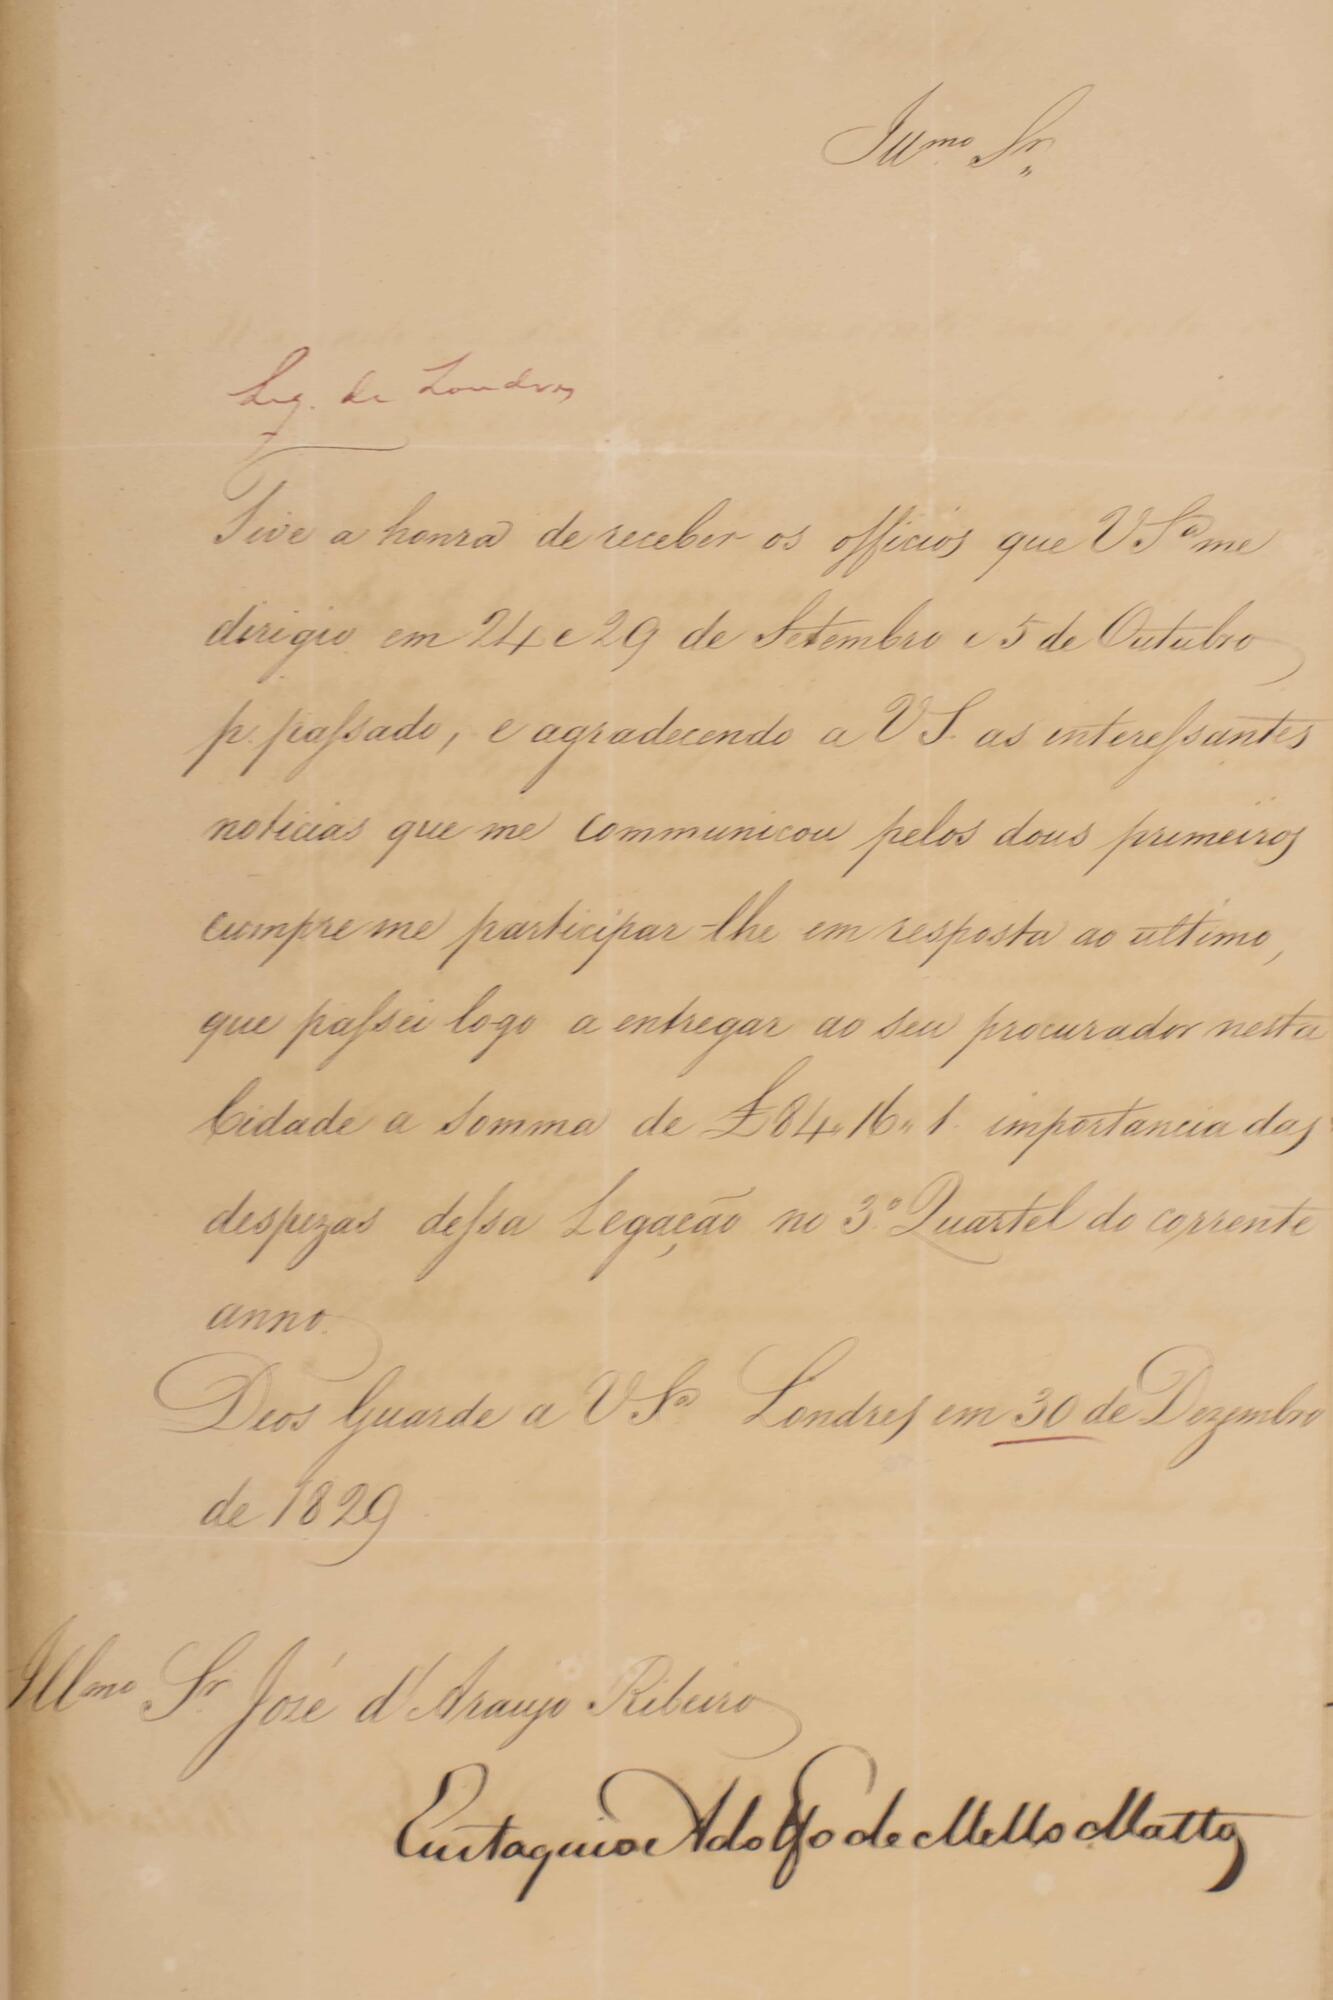 Illmo Sr.
Leg. de Londres
Tive a honra de receber os officios que VSa me
dirigio em 24 e 29 de Setembro e 5 de Outubro
p. passado, e agradecendo a VS. as interessantes
noticias que me communicou pelos dous primeiros
cumpre me participar-lhe em resposta ao ultimo,
que passei logo a entregar ao seu procurador nesta
Cidade a somma de £84,,16,,1. importancia das
despezas dessa Legação no 3.º Quartel do corrente
anno.
Deos Guarde a VSa Londres em 30 de Dezembro
de 1829
Illmo Sr. José d'Araujo Ribeiro
Eustaquio Adolfo de Mello Mattos